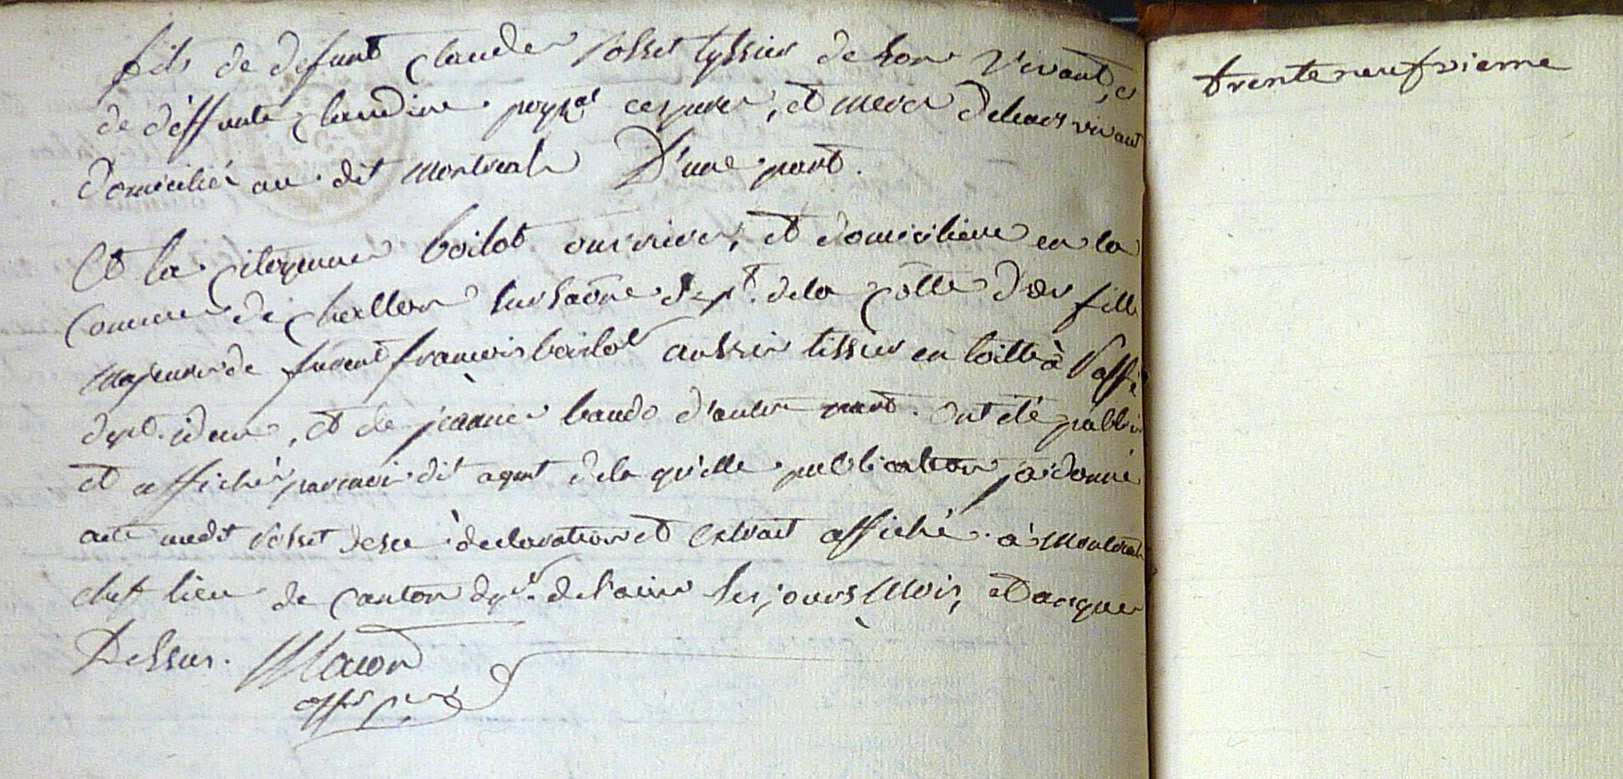 fils de defunt Claude Rosset tyssier de son vivant, et
de déffunte Claudine ces pere, et mere deleurs vivant
domicilié au dit Montreal D'une part.
Et la Citoyenne boilot ouvriere, et domiciliere en la
Commune de Challon sur Saone Dept. dela Cotte d'or fille
majeure de francois boilot aussi tissier en toille à
dept. idem, et de jeanne baude d'autre part. ont été publié
et affiché par moi dit agent dela qu'elle publication j'ai donné
acte audit Rosset desa déclaration et Extrait affiché à Montreal
chef lieu de Canton dept. de l'ain les jours mois, et an que
Dessus.
trente neufvieme